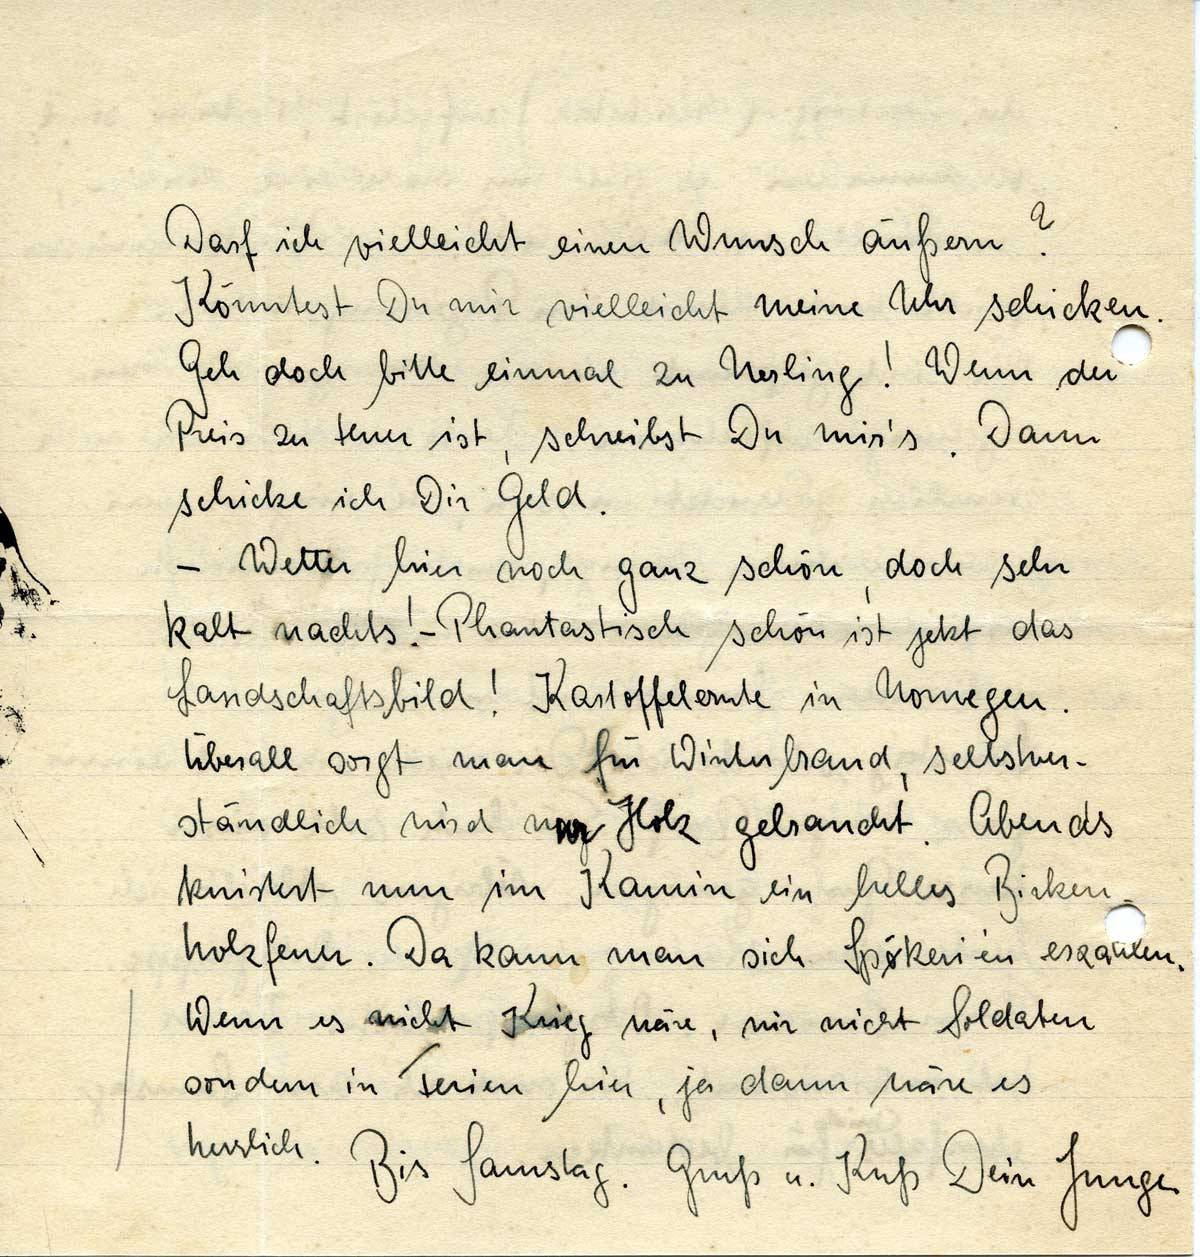 Darf ich vielleicht einen Wunsch äußern?
Könntest Du mir vielleicht meine Uhr schicken.
Geh doch bitte einmal zu Nerling! Wenn der
Preis zu teuer ist, schreibst Du mir's. Dann
schicke ich Dir Geld.
– Wetter hier noch ganz schön, doch sehr
kalt nachts! – Phantastisch schön ist jetzt das
Landschaftsbild! Kartoffelernte in Norwegen.
Überall sorgt man für Winterbrand, selbstver-
ständlich wird nur Holz gebraucht. Abends
knistert nun im Kamin ein helles Birken-
holzfeuer. Da kann man sich Spökerien erzählen.
Wenn es nicht Krieg wäre, wir nicht Soldaten
sondern in Ferien hier, ja dann wäre es
herrlich. Bis Samstag. Gruß u. Kuß Dein Junge